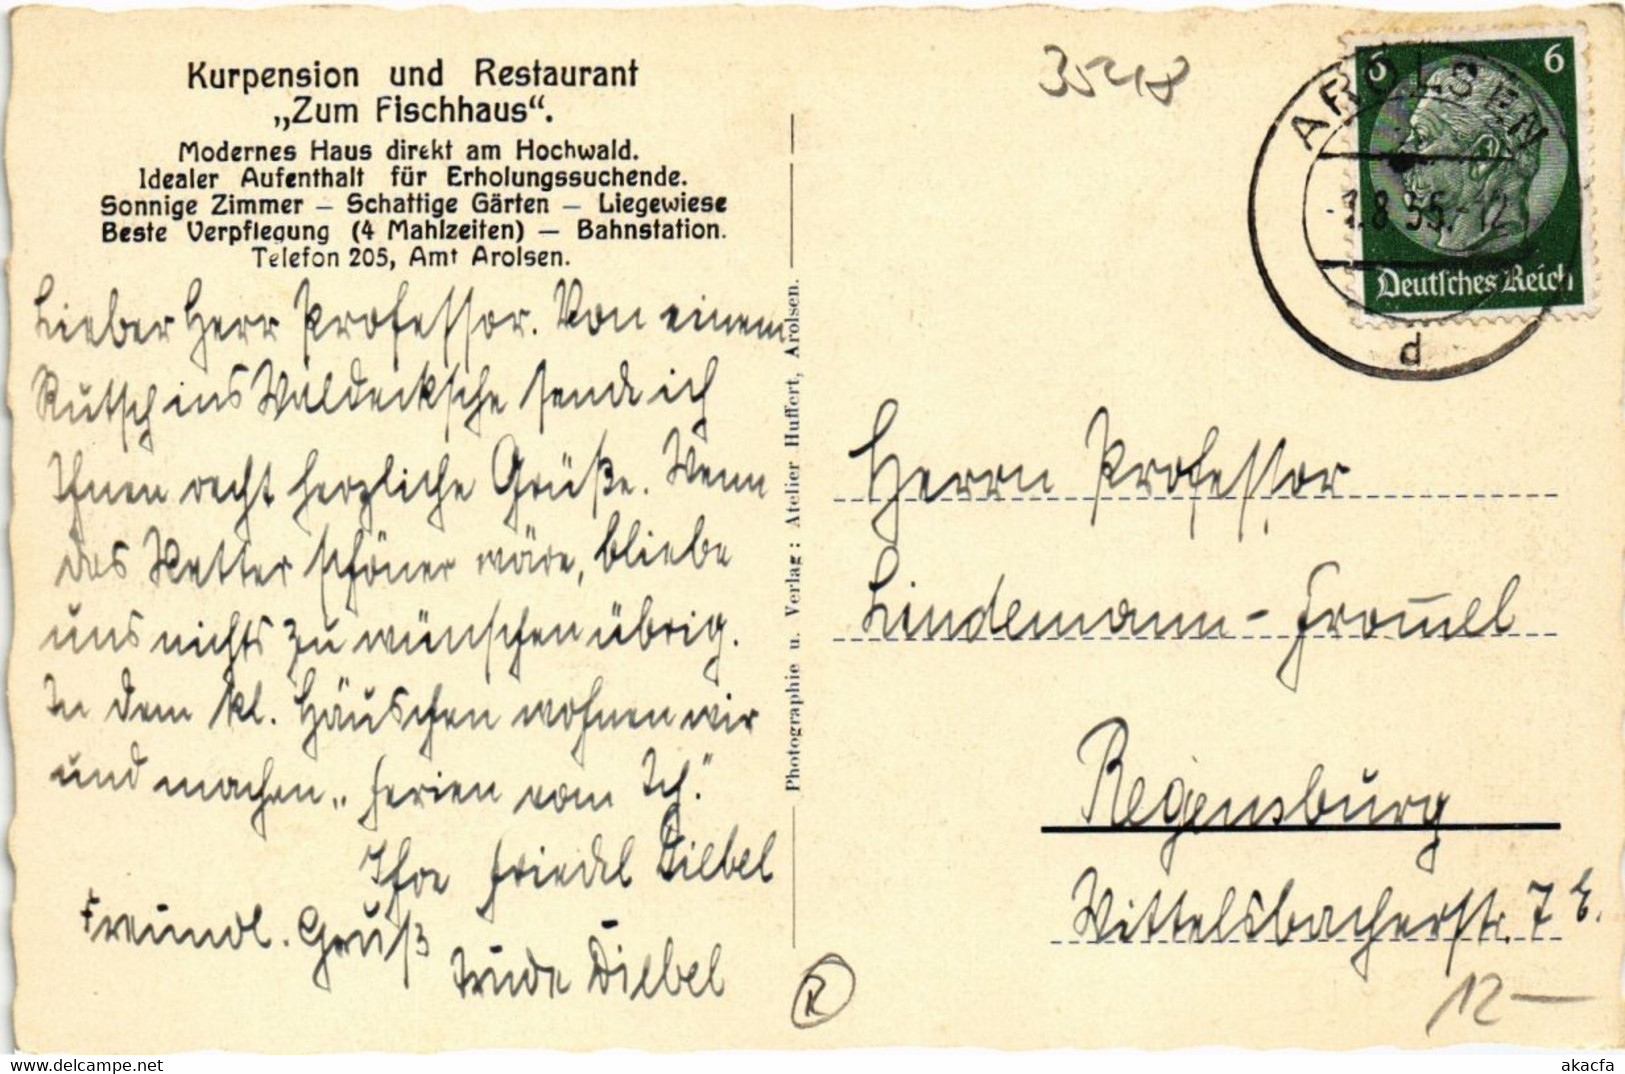 Kurpension und Restaurant
„Zum Fischhaus“.
Modernes Haus direkt am Hochwald.
Idealer Aufenthalt für Erholungssuchende.
Sonnige Zimmer — Schattige Gärten — Liegewiese
Beste Verpflegung (4 Mahlzeiten) — Bahnstation.
Telefon 205, Amt Arolsen.
Lieber Herr Professor. Von einem
Rutsch ins Waldecksche sende ich
Ihnen recht herzliche Grüße. Wenn
das Wetter schöner wäre, bliebe
uns nichts zu wünschen übrig.
In dem kl. Häuschen wohnen wir
und machen „Ferien vom Ich."
Ihre Friedel Diebel
Freundl. Gruß
Trude Diebel
Photographie u. Verlag: Atelier Huffert, Arolsen.
35218
AROLSEN
8.35.-12
d
6 6
Deutsches Reich
Herrn Professor
Lindemann-From̅el
Regensburg
Wittelsbacherstr. 7
R
12 —
akacfa